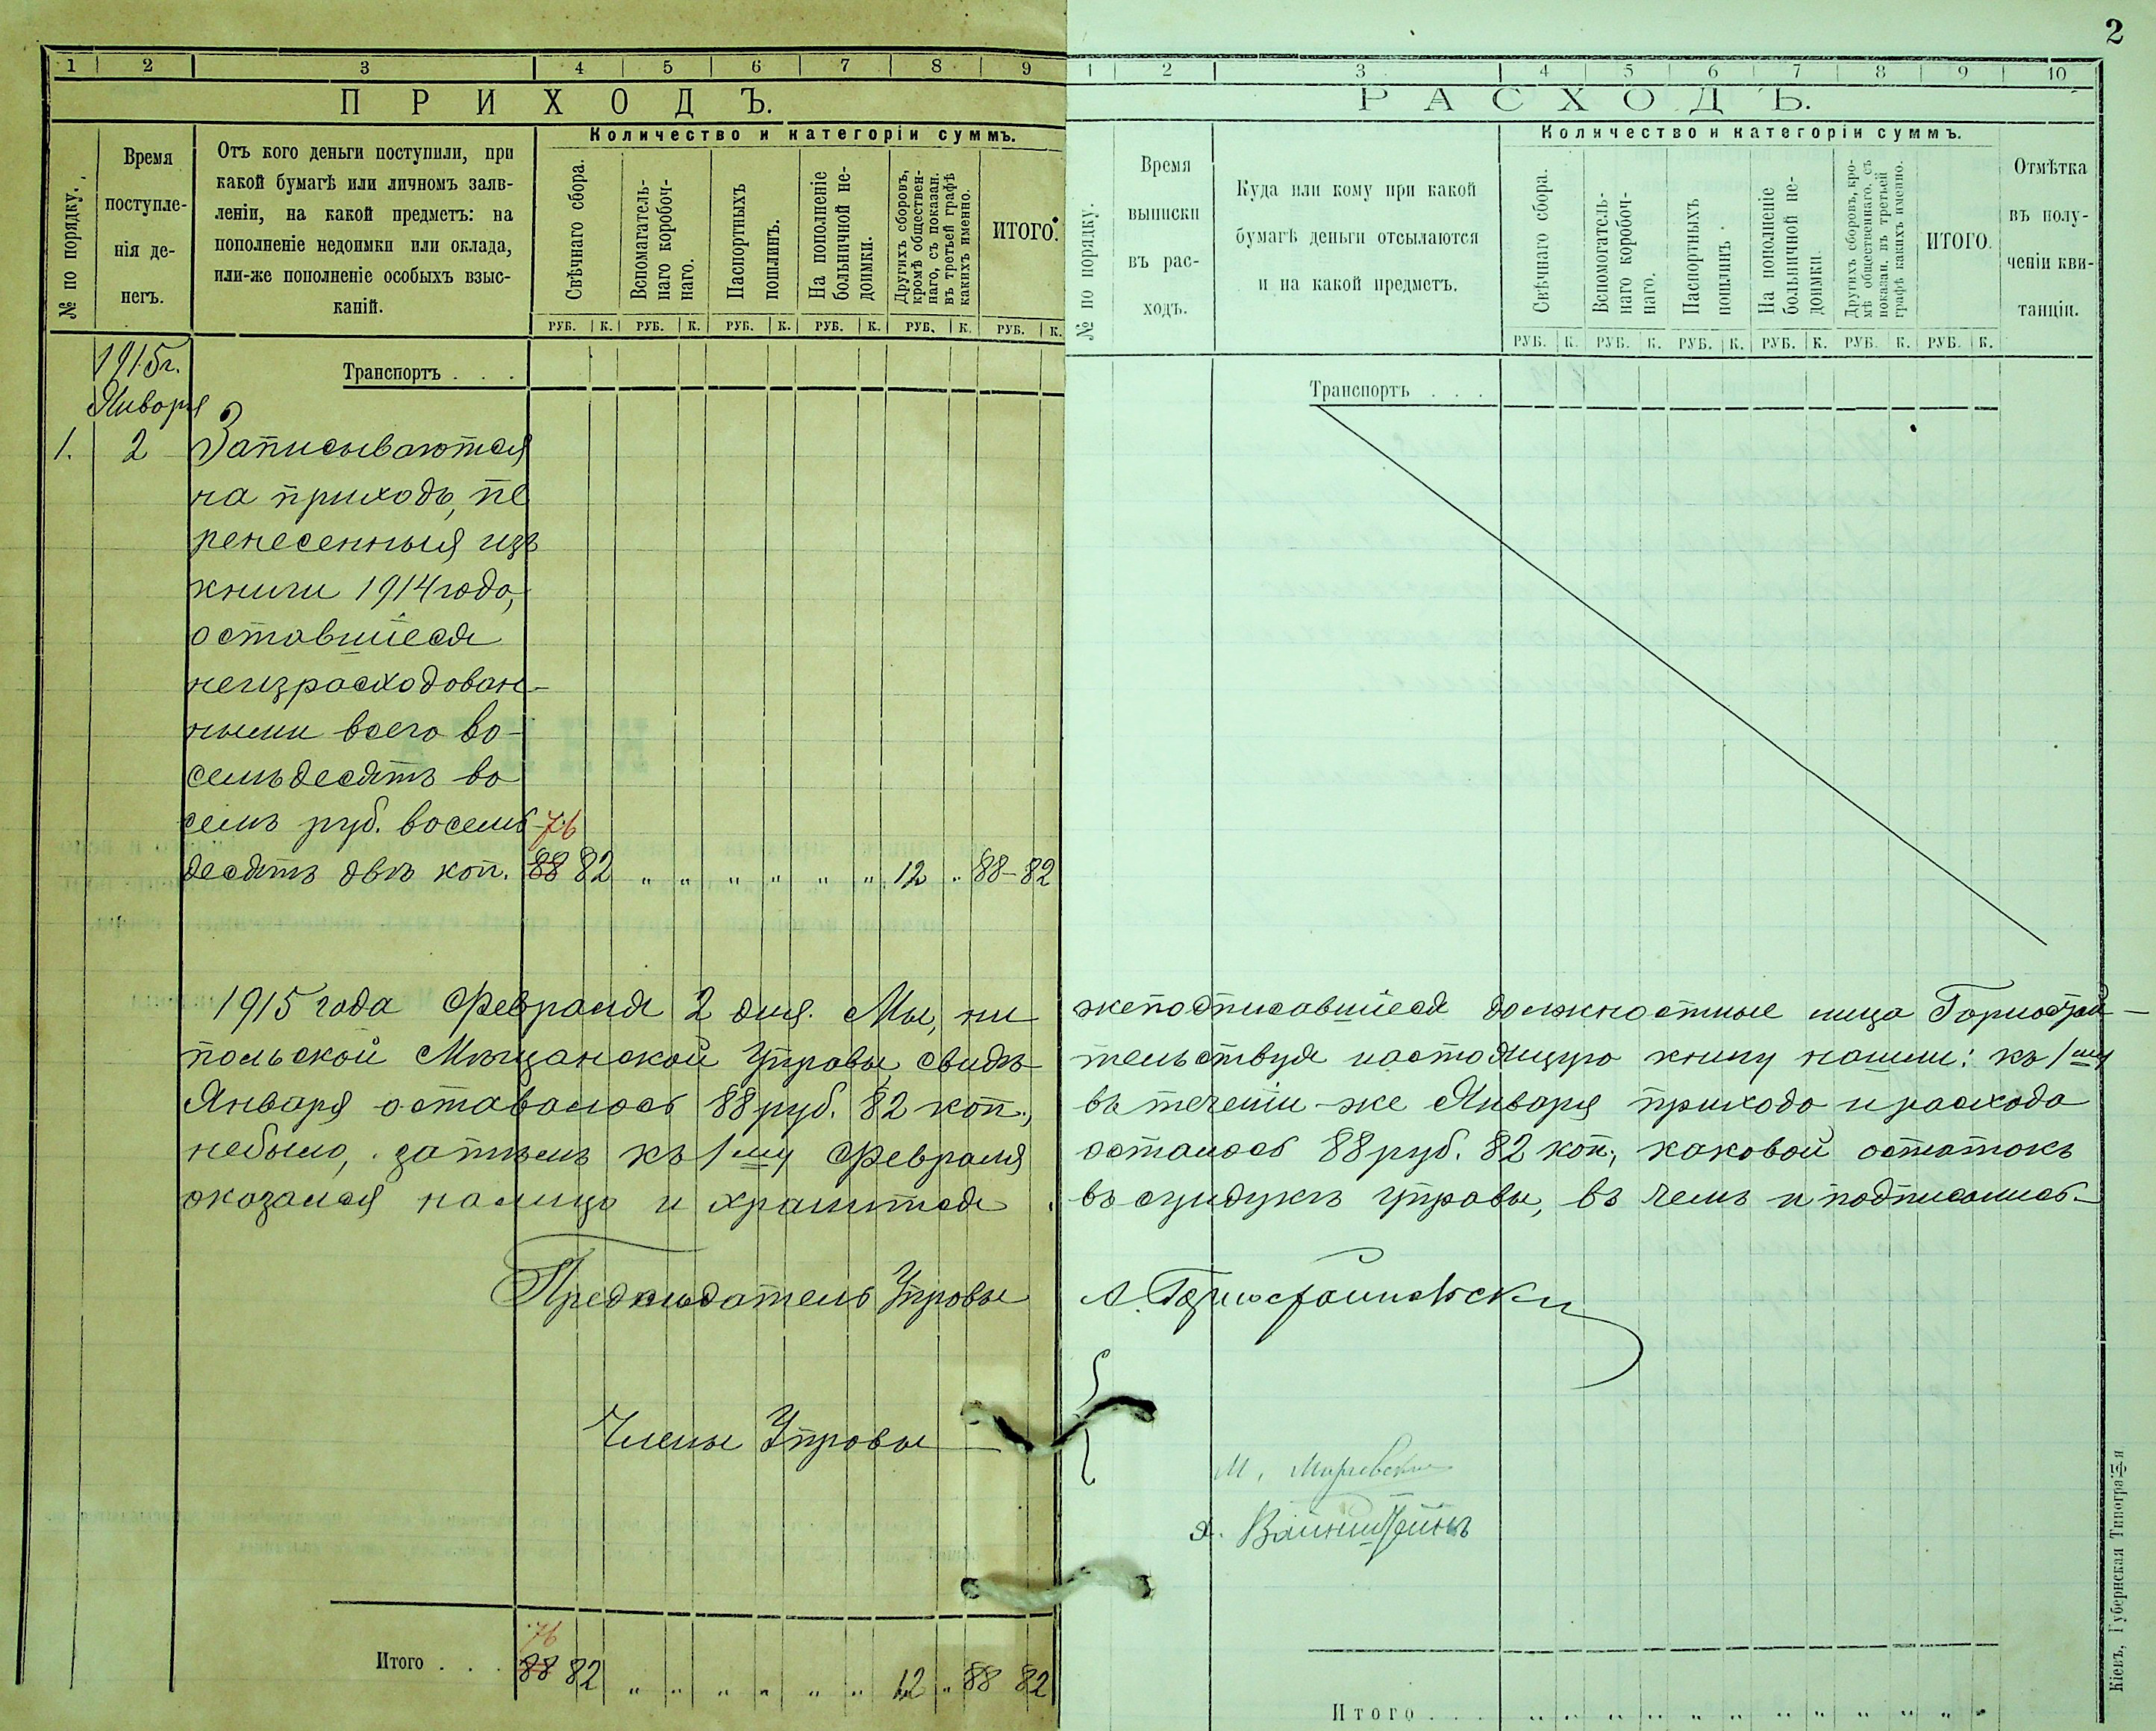 2
1 2 3 4 5 6 7 8 9
ПРИХОДЪ.
№ по порядку.
Время
поступле-
нія де-
негъ.
Отъ кого деньги поступили, при
какой бумагѣ или личномъ заяв-
леніи, на какой предметъ: на
пополненіе недоимки или оклада,
или-же пополненіе особыхъ взыс-
каній.
Количество и категоріи суммъ.
Свѣчнаго сбора.
Вспомагатель-
наго коробоч-
наго.
Паспортныхъ
пошлинъ.
На пополненіе
больничной не-
доимки.
Другихъ сборовъ,
кромѣ обществен-
наго, съ показан.
въ третьей графѣ
какихъ именно.
ИТОГО.
РУБ. К. РУБ. К. РУБ. К. РУБ. К. РУБ. К. РУБ. К.
Транспортъ . . .
1915г.
Января
1. 2 Записываются
на приходъ, пе
ренесенныя изъ
книги 1914 года,
оставшіеся
неизрасходован-
ными всего во-
семьдесятъ во
семь руб. восемь- 76
десятъ двѣ коп. 88 82 " " " " " " 12 " 88-82
1 2 3 4 5 6 7 8 9 10
РАСХОДЪ.
№ по порядку.
Время
выписки
въ рас-
ходъ.
Куда или кому при какой
бумагѣ деньги отсылаются
и на какой предметъ.
Количество и категоріи суммъ.
Свѣчнаго сбора.
Вспомогатель-
наго коробоч-
наго.
Паспортныхъ
пошлинъ.
На пополненіе
больничной не-
доимки.
Другихъ сборовъ, кро-
мѣ общественнаго, съ
показан. въ третьей
графѣ какихъ именно.
ИТОГО.
Отмѣтка
въ полу-
ченіи кви-
танціи.
РУБ. К. РУБ. К. РУБ. К. РУБ. К. РУБ. К. РУБ. К.
Транспортъ . . .
1915 года Февраля 2 дня. Мы, ни жеподписавшіеся должностные лица Горностай-
польской Мѣщанской Управы, свидѣ тельствуя настоящую книгу нашли: къ 1му
Января оставалось 88 руб. 82 коп., въ теченіи же Января прихода и расхода
небыло, затѣмъ къ 1му Февраля осталось 88 руб. 82 коп., каковой остатокъ
оказался налицо и хранится въ сундукѣ Управы, въ чемъ и подписались.
Предсѣдатель Управы
Члены Управы
М.
Х. Вайнштейнъ
76
Итого . . . 88 82 " " " " " " 12 " 88 82
Итого . . . " " " " " " " " " " " "
Кіевъ, Губернская Типографія